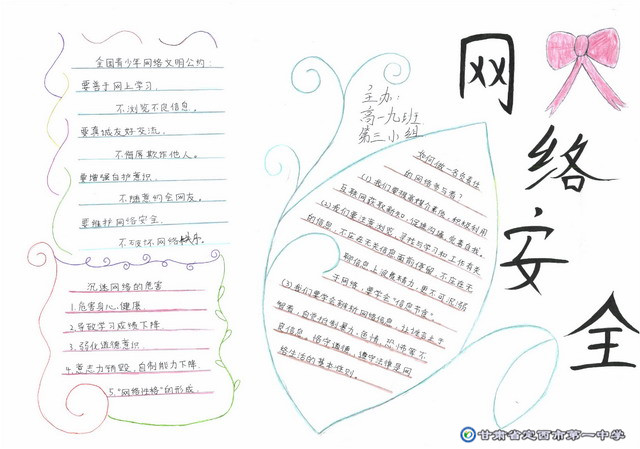 网络安全
主办:
高一九班
第三小组
全国青少年网络文明公约:
要善于网上学习.
不浏览不良信息。
要真诚友好交流.
不侮辱欺诈他人。
要增强自护意识.
不随意约会网友。
要维护网络安全.
不破坏网络秩序。
沉迷网络的危害
1.危害身心健康.
2.导致学习成绩下降.
3.弱化道德意识.
4.意志力销毁,自制能力下降.
5."网络性格"的形成.
如何做一名负责任
的网络参与者?
(1)我们要提高媒介素养,积极利用
互联网获取新知、促进沟通、完善自我。
(2)我们要注意浏览、寻找与学习和工作有关
的信息,不应在无关信息面前停留,不应在无
聊信息上浪费精力,更不可沉溺
于网络,要学会"信息节食"
(3)我们要学会辨析网络信息,让谣言止于
智者,自觉抵制暴力、色情、恐怖等不
良信息。恪守道德、遵守法律是网
络生活的基本准则。
甘肃省定西市第一中学